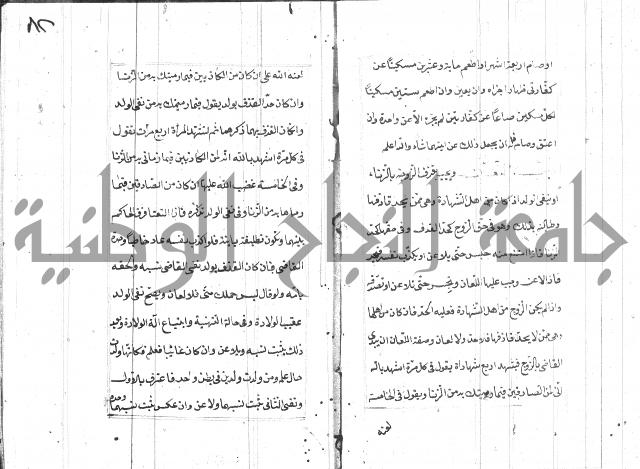 او صام اربعة اشهر او اطعم ماية وعشرين مسكينا عن
كفارتي ظهار اجزاه وان يعين وان اطعم ستين مسكينا
لكل مسكين صاعا عن كفارتين لم يجز الا عن واحدة وان
اعتق وصام فله ان يجعل ذلك عن ايتهما شاء والله اعلم
ويجب قرف الزوجة بالزنا
او بنفي الولد اذا كان من اهل الشهادة وهي ممن يحد قاذفها
وطالبته بذلك وهو في حق الزوج كحد القذف وفي حقها كحد
زنا فاذا امتنع منه حبس حتى يلاعن او يكذب نفسه فيحد
فاذا لاعن وجب عليها اللعان وتحبس حتى تلاعن او تصدقه
واذا لم يكن الزوج من اهل الشهادة فعليه الحد فان كان من اهلها
وهي ممن لا يحد قاذفها فلا حد ولا لعان وصفة اللعان ان يبتدئ
القاضي بالزوج فيشهد اربع شهادات يقول في كل مرة اشهد بالله
اني لمن الصادقين فيما رميتك به من الزنا ويقول في الخامسة
لعنة
لعنة الله علي ان كان من الكاذبين فيما رميتك به من الزنا
وان كان القذف بولد يقول فيما رميتك به من نفي الولد
وان كان القذف بهما ذكرهما ثم تشهد المرأة اربع مرات تقول
في كل مرة اشهد بالله انه لمن الكاذبين فيما رماني به من الزنا
وفي الخامسة غضب الله عليها ان كان من الصادقين فيما
رماها به من الزنا وفي نفي الولد تذكره فاذا التعنا فرق الحاكم
بينهما وتكون تطليقة باينة فلو اكذب نفسه عاد خاطبا
القاضي فان كان القذف بولد نفى القاضي نسبه والحقه
بامه ولو قال ليس حملك مني فلا لعان ويصح نفي الولد
عقيب الولادة وفي حالة التهنية وابتياع آلة الولادة وبعد
ذلك يثبت نسبه ويلاعن وان كان غائبا فعلم فكأنها ولدت
حال علمه ومن ولدت ولدين في بطن واحد فاعترف بالاول
ونفى الثاني ثبت نسبهما ولاعن وان عكس ثبت نسبهما وحد
جامعة النجاح الوطنية